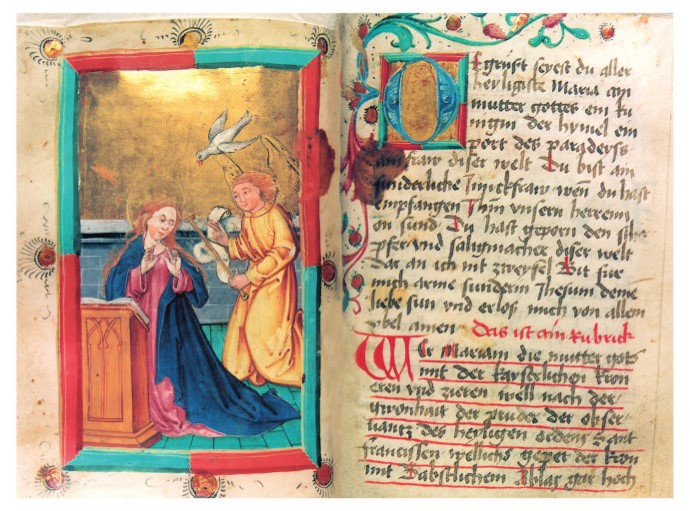 O gegrüst seyest du aller
heyligiste Maria ain
mutter gottes ein kü
nigin der hymel ein
port des paradeyss
ain fraw diser welt Du bist ain
sunderliche Junckfraw wen du hast
empfangen Jhm vnsern herrenn
on sund Du hast geporn den
pfer vnd saligmacher diser welt
Dar an ich nit zweyfel Bit für
mich arme sünderin Jhesum deine
liebe sun vnd erloß mich von allem
vbel amen Das ist ain Rubrick
Wer Mariam die mutter gots
mit der kayserlichen kron
eren vnd zieren well nach der
gwonhait der pruder der obser
uantz des heyligen ordens Sant
francissen wellichs gepet der kron
mit Babstlichem Ablas gar hoch